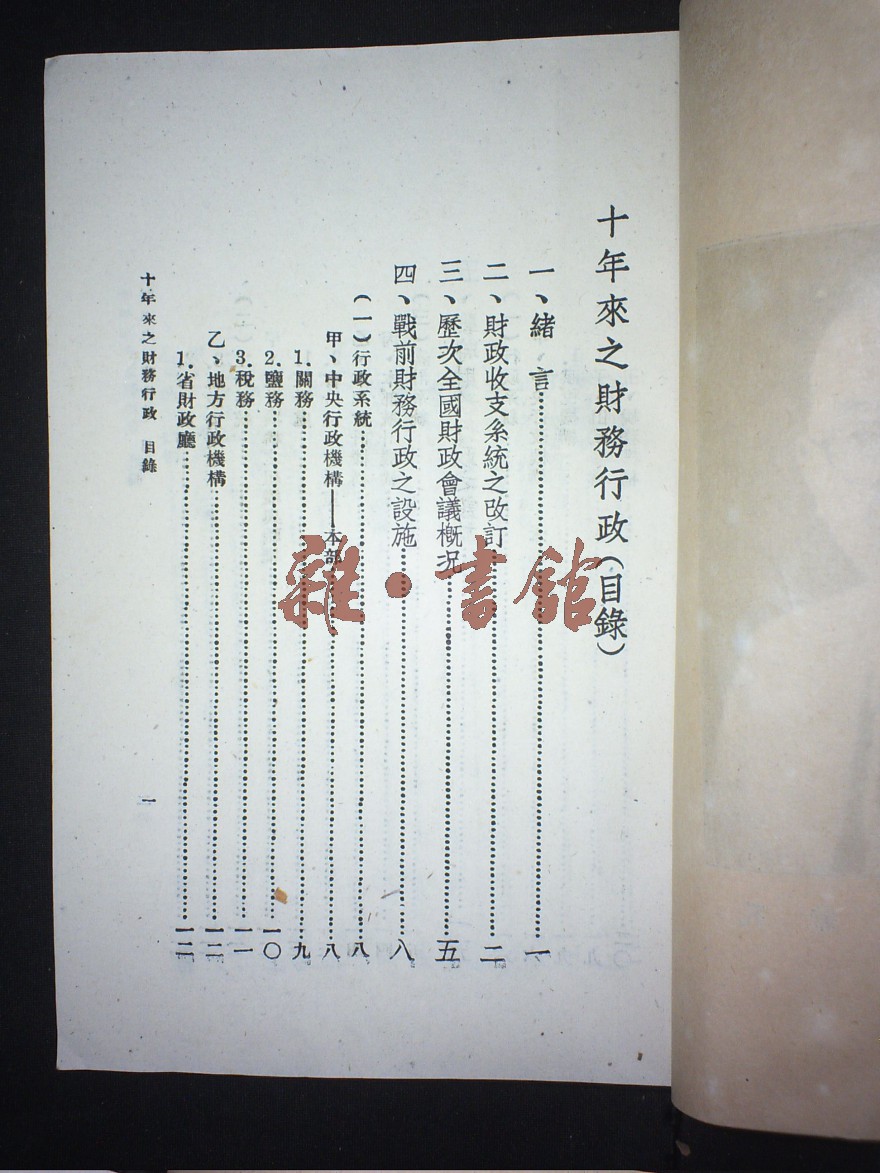 十年來之財務行政(目錄)
一、緒 言……一
二、財政收支系統之改訂……二
三、歷次全國財政會議概况……五
四、戰前財務行政之設施……八
(一)行政系統……八
甲、中央行政機構——本部……八
1.關務……九
2.鹽務……一〇
3.稅務……一一
乙、地方行政機構……一二
1.省財政廳……一二
十年來之財務行政 目錄 一
雜·書館